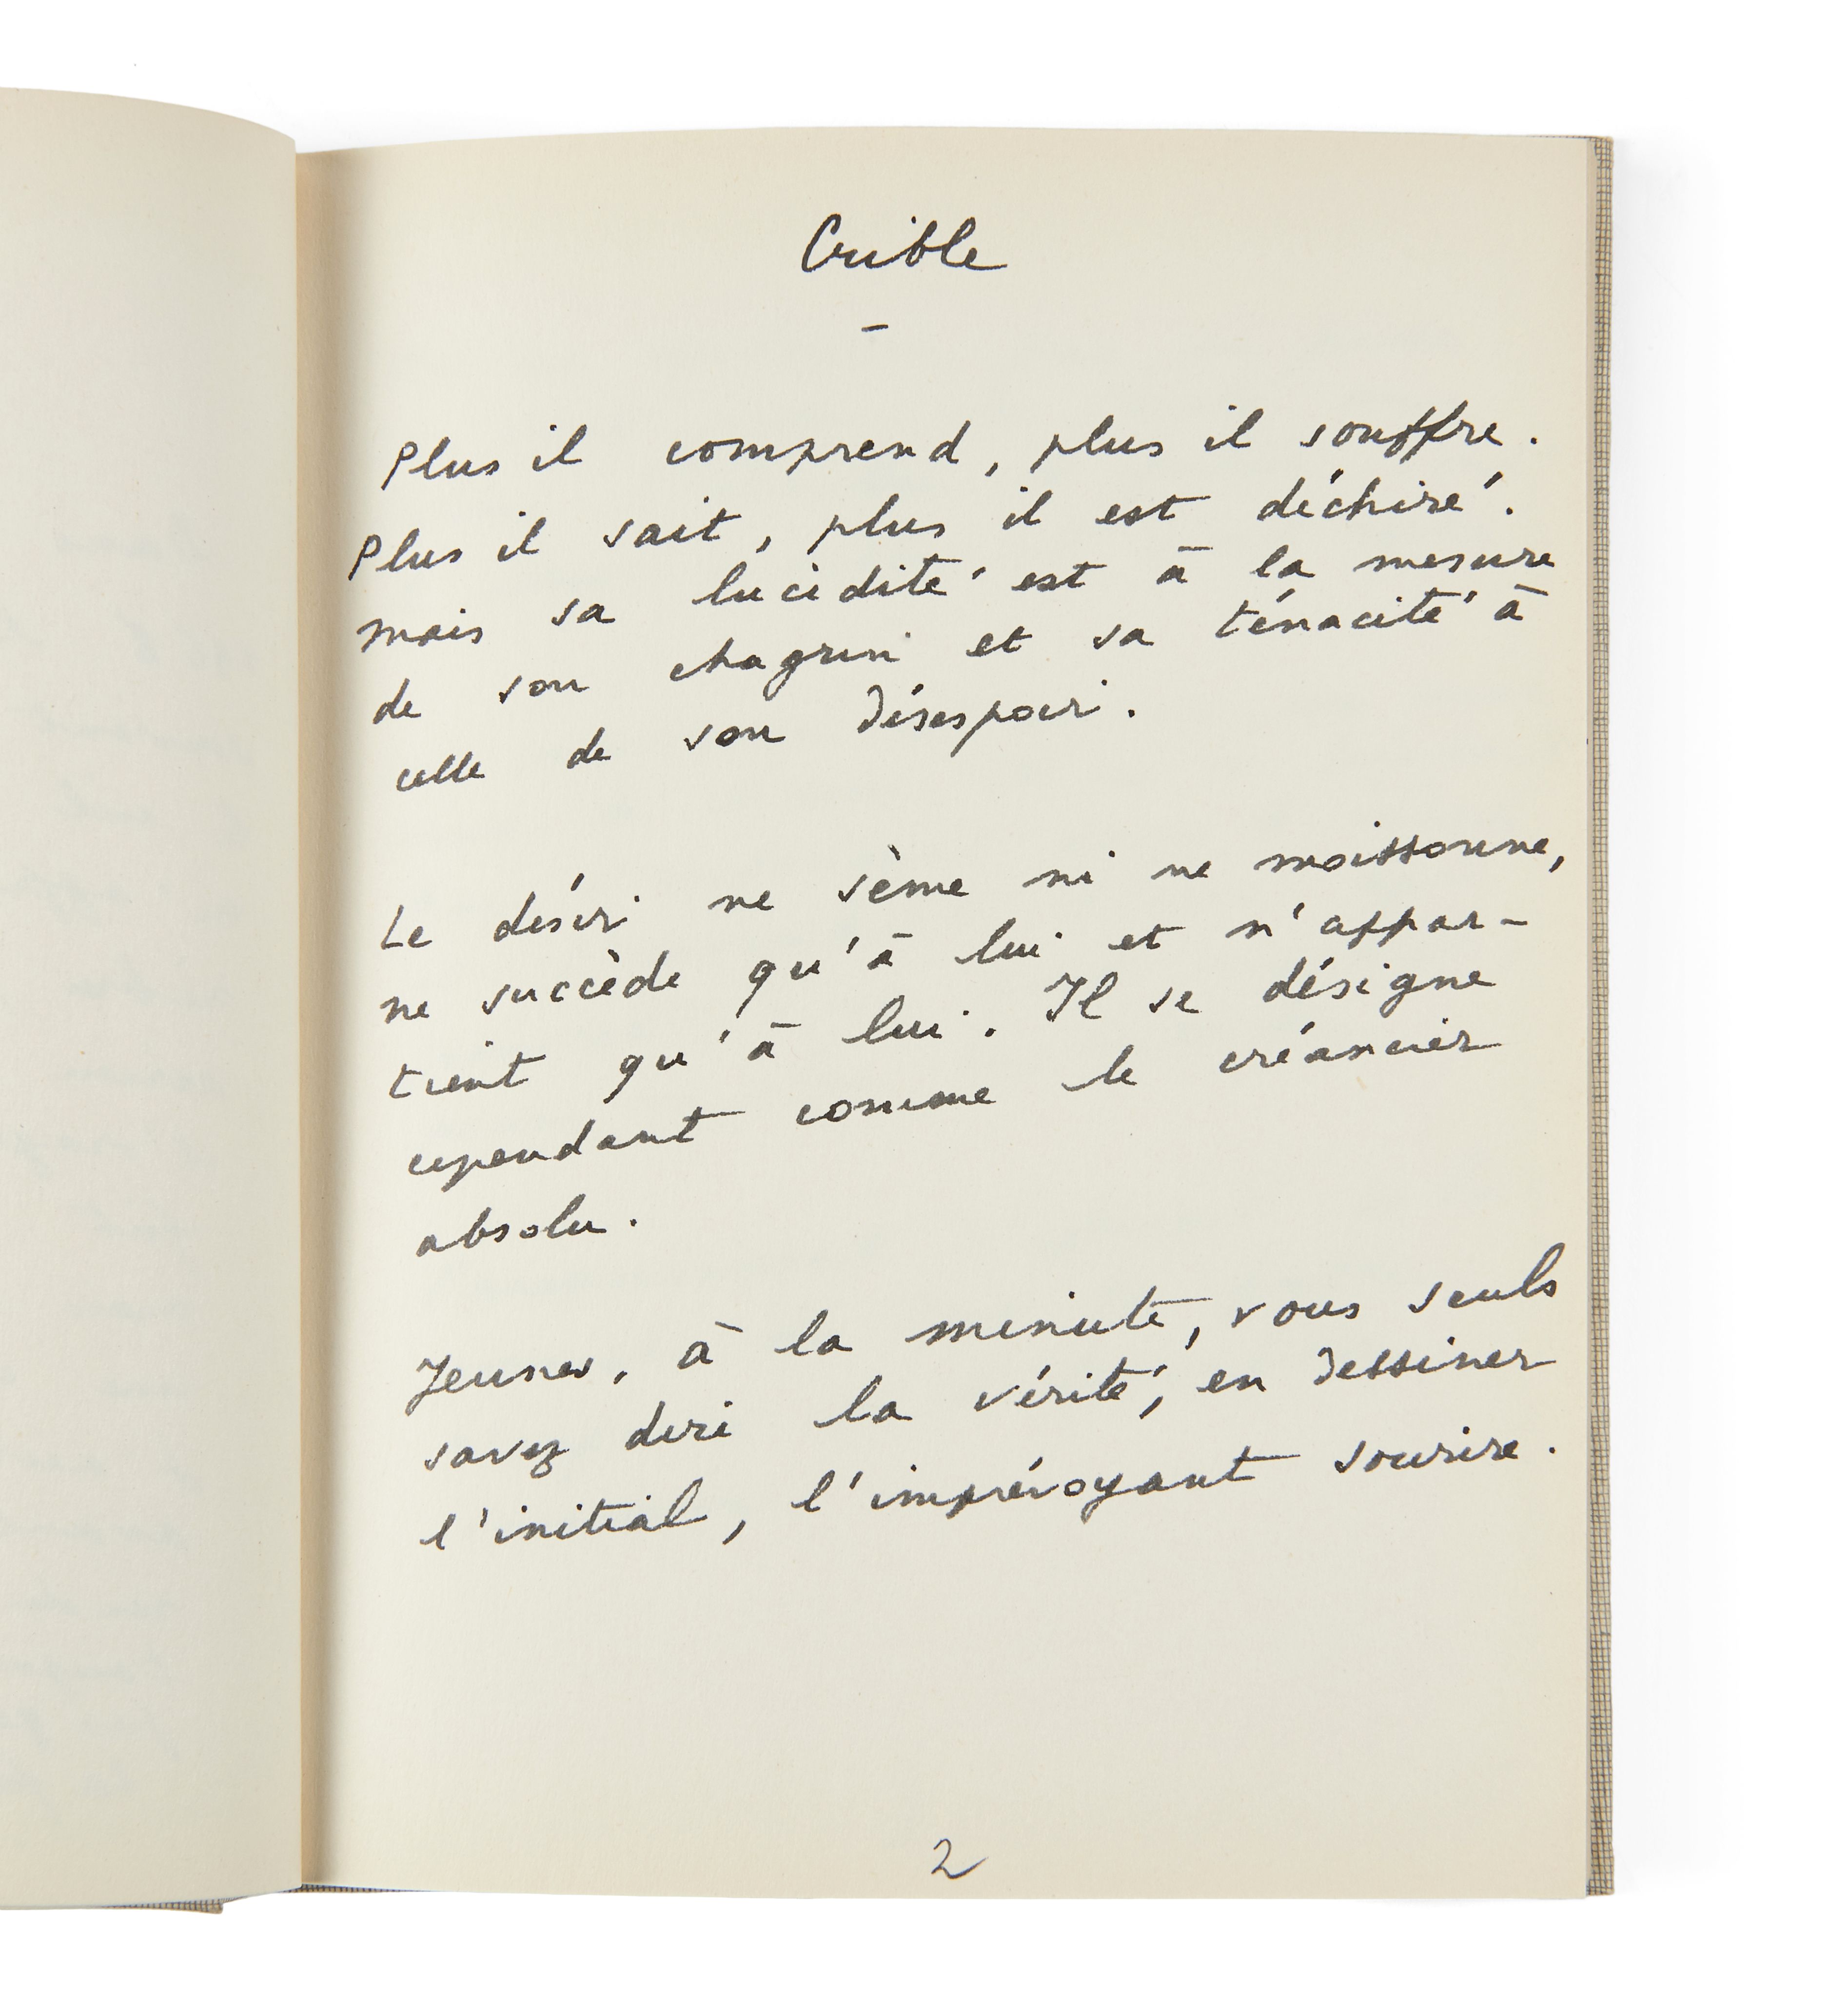 Crible
–
Plus il comprend, plus il souffre.
Plus il sait, plus il est déchiré.
Mais sa lucidité est à la mesure
de son chagrin et sa ténacité à
celle de son désespoir.
Le désir ne sème ni ne moissonne,
ne succède qu'à lui et n'appar-
tient qu'à lui. Il se désigne
cependant comme le créancier
absolu.
Jeunes, à la minute, vous seuls
savez dire la vérité, en dessiner
l'initial, l'imprévoyant sourire.
2